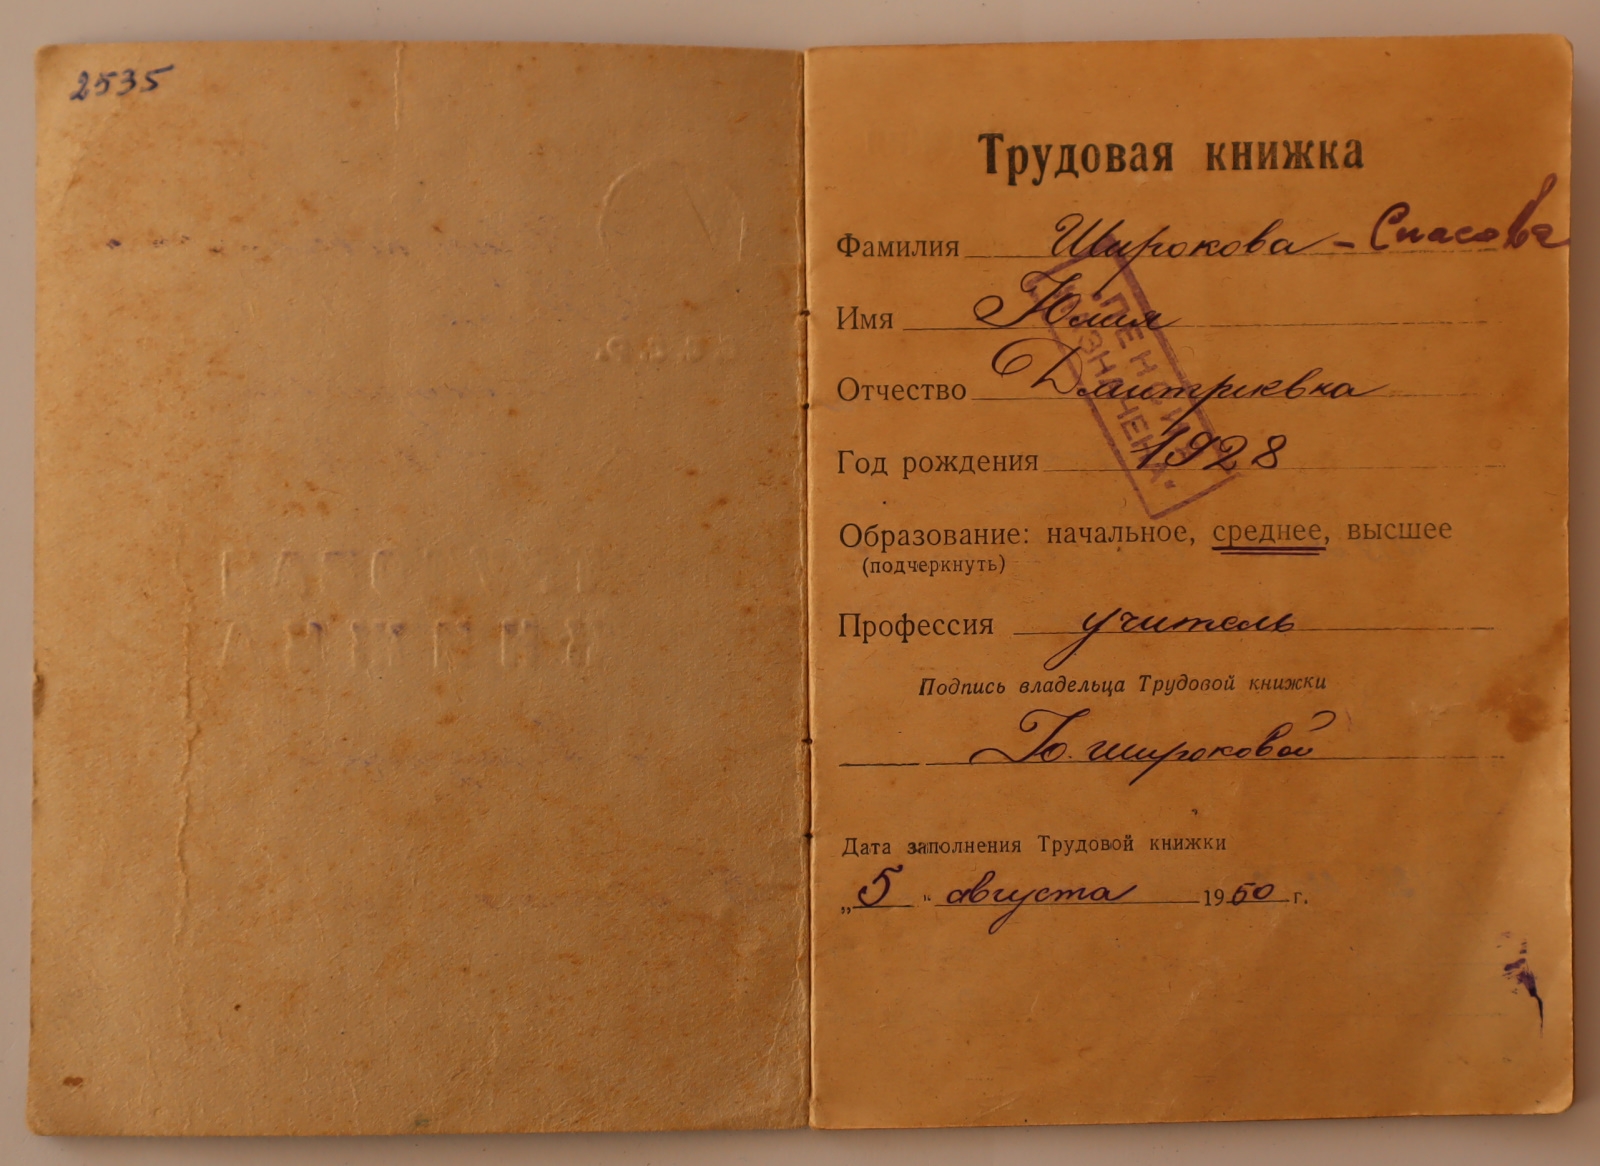 2535
Трудовая книжка
Фамилия Широкова - Спасова
Имя Юлия
Отчество Дмитриевна
Год рождения 1928
ПЕНСИЯ
НАЗНАЧЕНА
Образование: начальное, среднее, высшее
(подчеркнуть)
Профессия учитель
Подпись владельца Трудовой книжки
Ю. Широковой
Дата заполнения Трудовой книжки
„5" августа 1950 г.
С.С.С.Р.
ТРУДОВАЯ
КНИЖКА